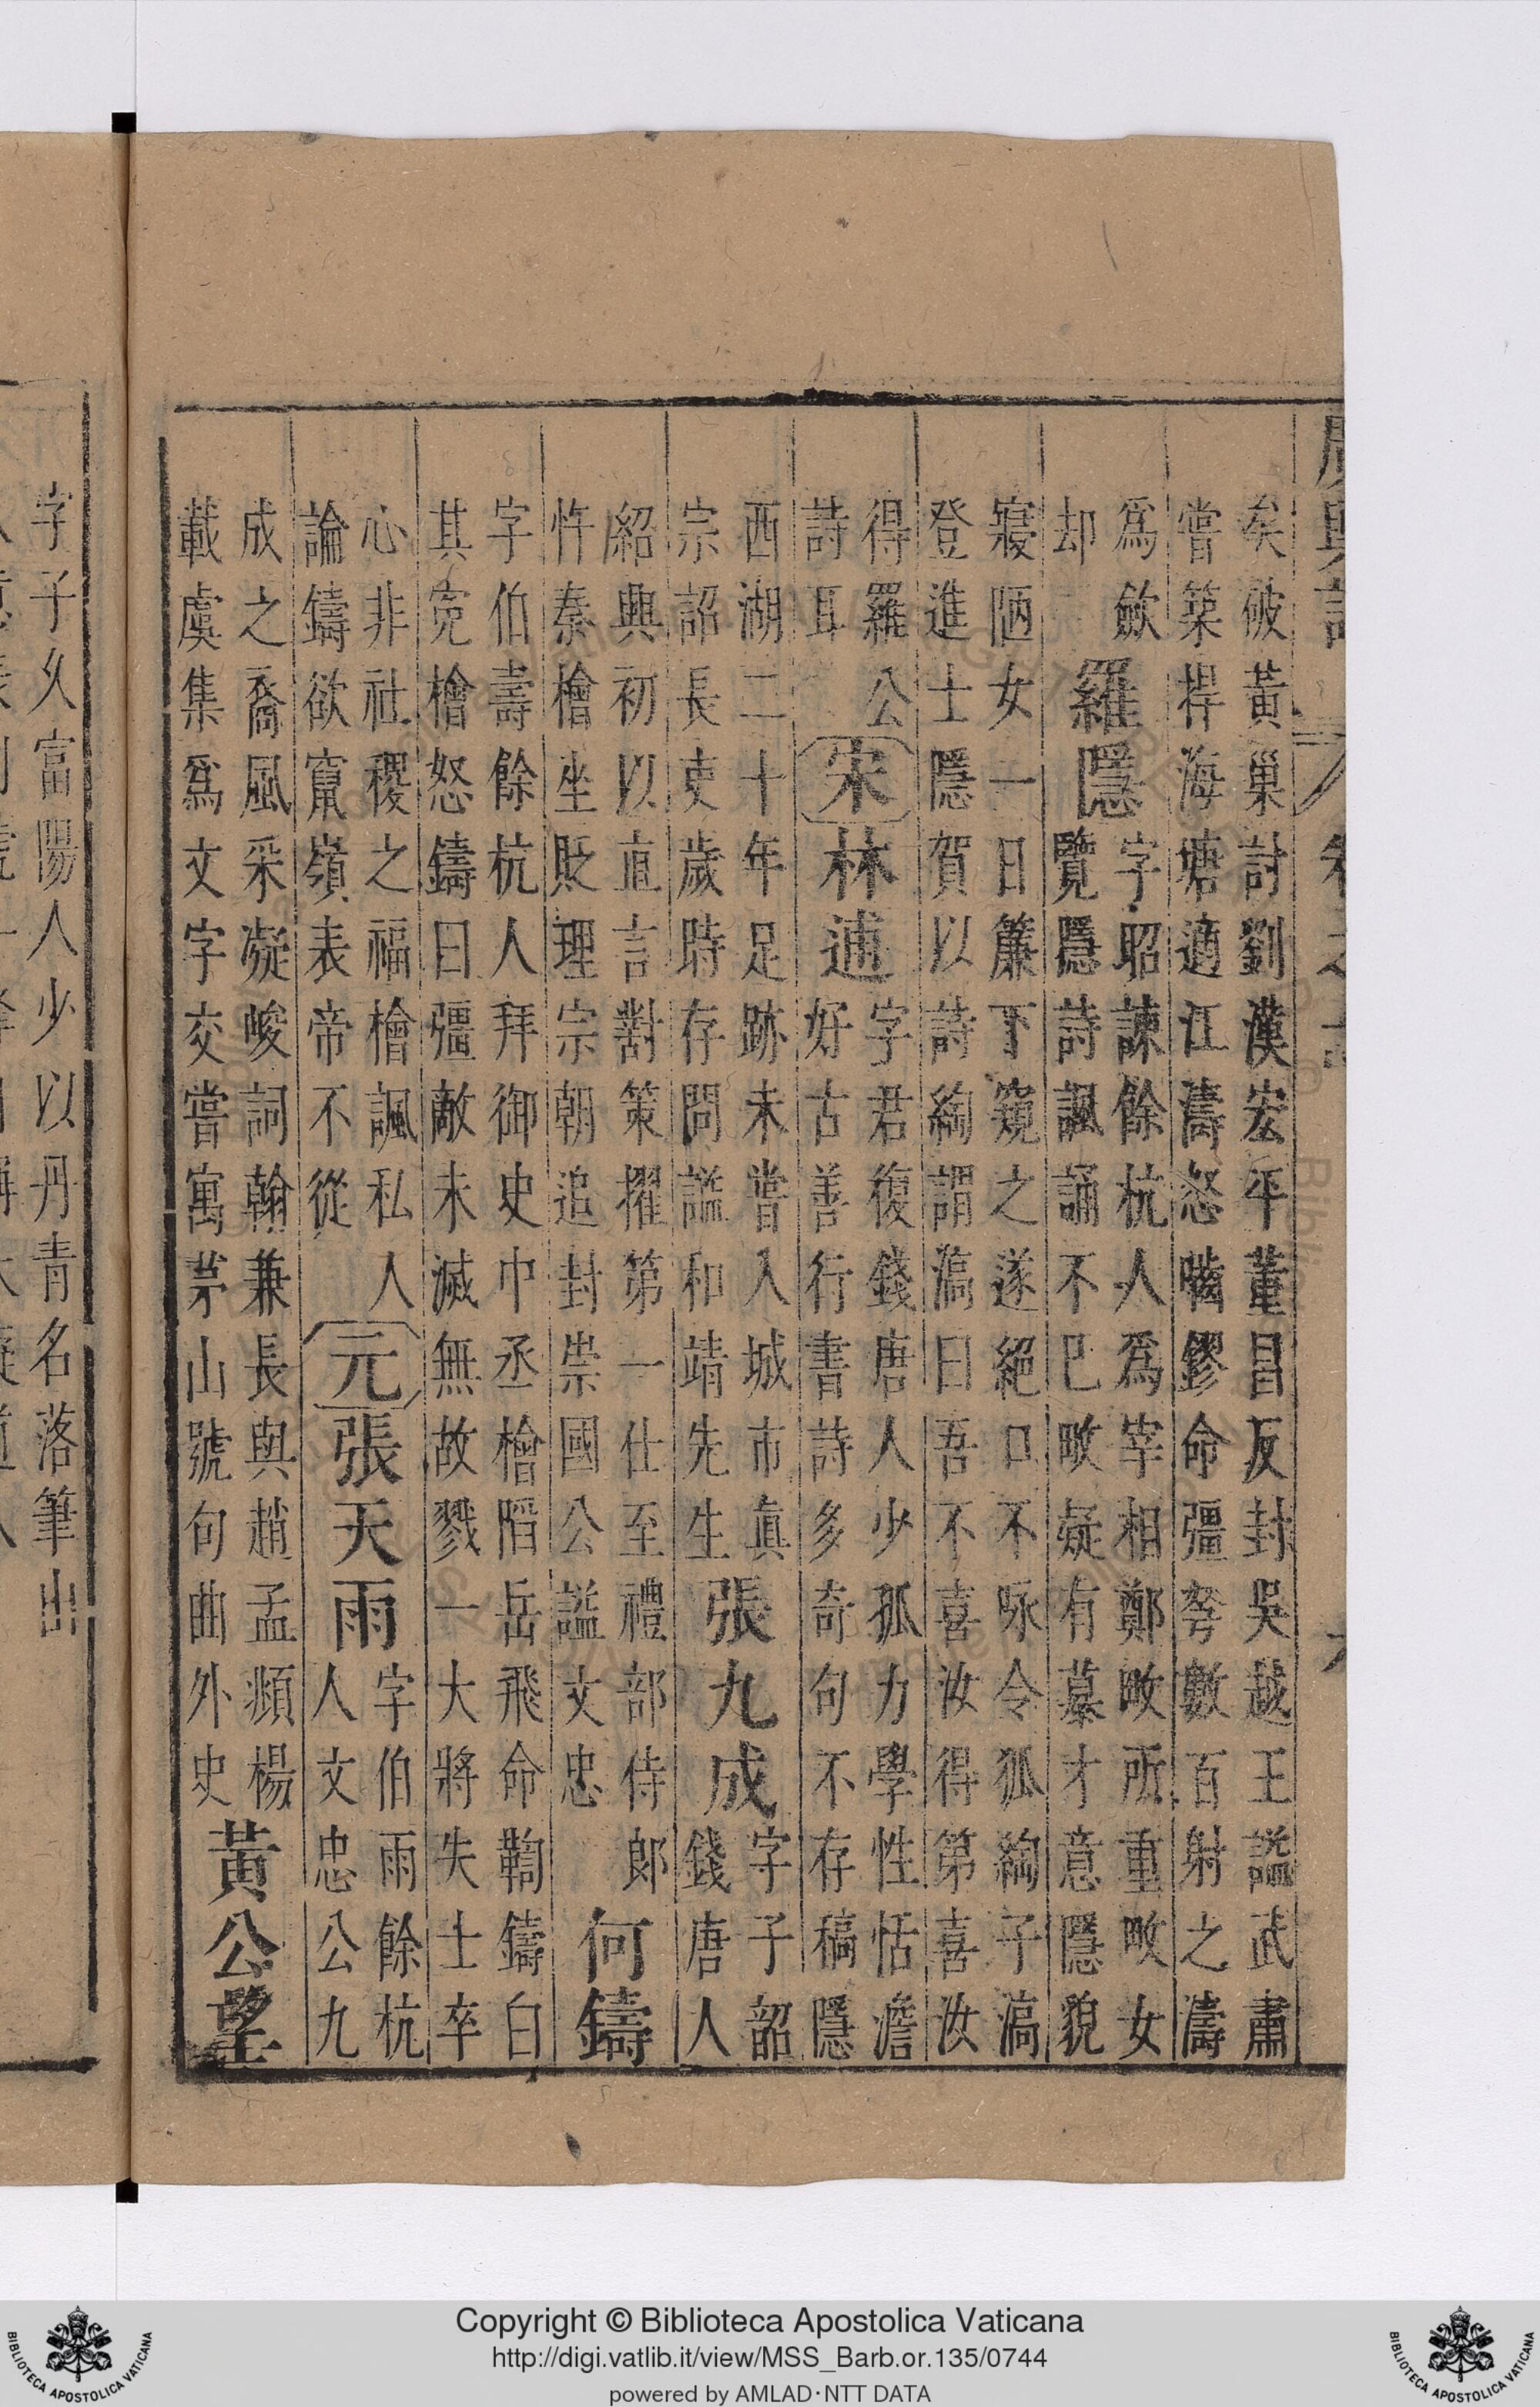 廣輿記
矣破黃巢討劉漢宏平董昌反封吳越王諡武肅
嘗築捍海塘適江濤怒嚙鏐命彊弩數百射之濤
爲歛
却
羅隱
字昭諫餘杭人爲宰相鄭畋所重畋女
覽隱詩諷誦不已畋疑有慕才意隱貌
寢陋女一日簾下窺之遂絕口不咏令狐綯子滈
登進士隱賀以詩綯謂滈曰吾不喜汝得第喜汝
得羅公
詩耳
宋
林逋
字君復錢唐人少孤力學性恬澹
好古善行書詩多奇句不存稿隱
西湖二十年足跡未嘗入城市眞
宗詔長吏歲時存問諡和靖先生
張九成
字子韶
錢唐人
紹興初以直言對策擢第一仕至禮部侍郎
忤秦檜坐貶理宗朝追封崇國公諡文忠
何鑄
字伯壽餘杭人拜御史中丞檜陷岳飛命鞫鑄白
其寃檜怒鑄曰彊敵未滅無故戮一大將失士卒
心非社稷之福檜諷私人
論鑄欲竄嶺表帝不從
元
張天雨
字伯雨餘杭
人文忠公九
成之裔風采凝峻詞翰兼長與趙孟頫楊
載虞集爲文字交嘗寓茅山號句曲外史
黃公望
字子久富陽人少以丹青名落筆出
Copyright © Biblioteca Apostolica Vaticana
http://digi.vatlib.it/view/MSS_Barb.or.135/0744
powered by AMLAD·NTT DATA
BIBLIOTECA APOSTOLICA VATICANA
BIBLIOTECA APOSTOLICA VATICANA